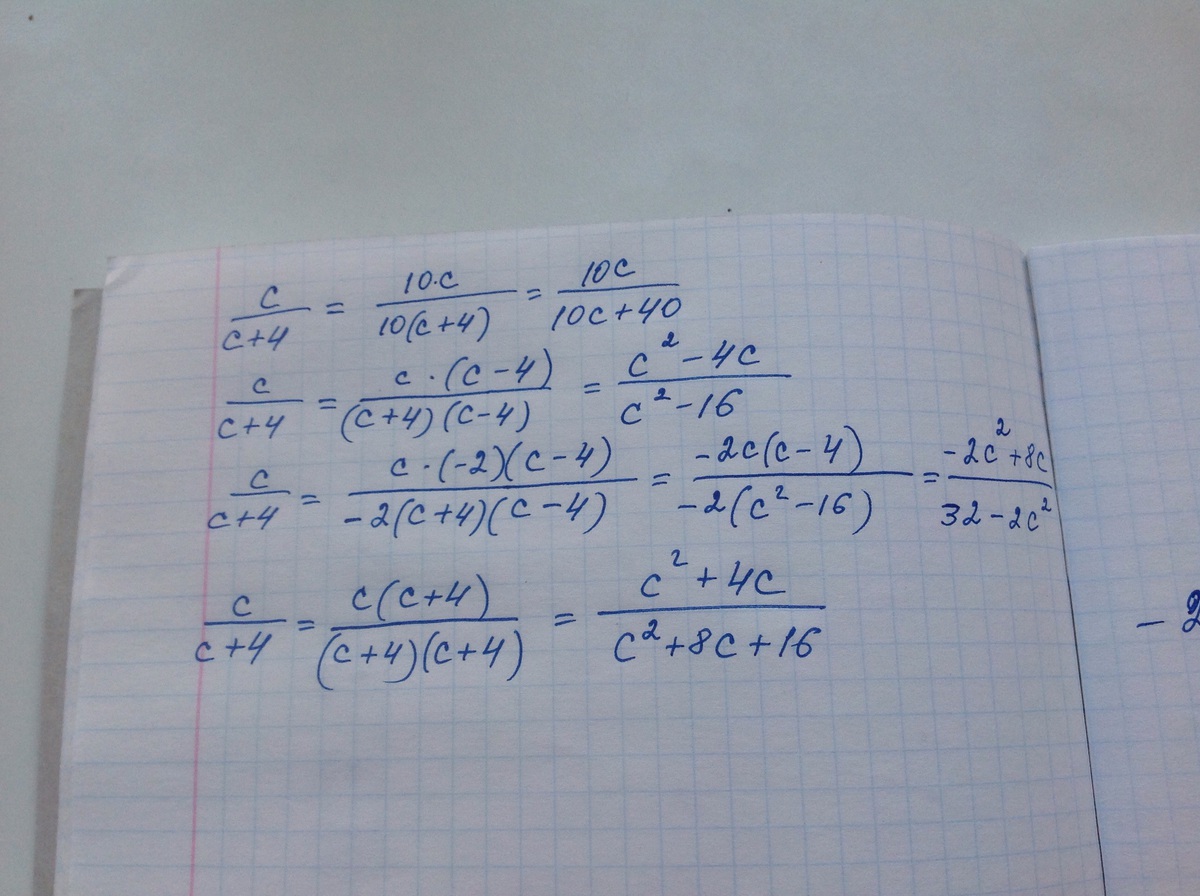 c/(c+4) = 10·c/(10(c+4)) = 10c/(10c+40)
c/(c+4) = c·(c-4)/((c+4)(c-4)) = (c²-4c)/(c²-16)
c/(c+4) = c·(-2)(c-4)/(-2(c+4)(c-4)) = -2c(c-4)/(-2(c²-16)) = (-2c²+8c)/(32-2c²)
c/(c+4) = c(c+4)/((c+4)(c+4)) = (c²+4c)/(c²+8c+16)
-2